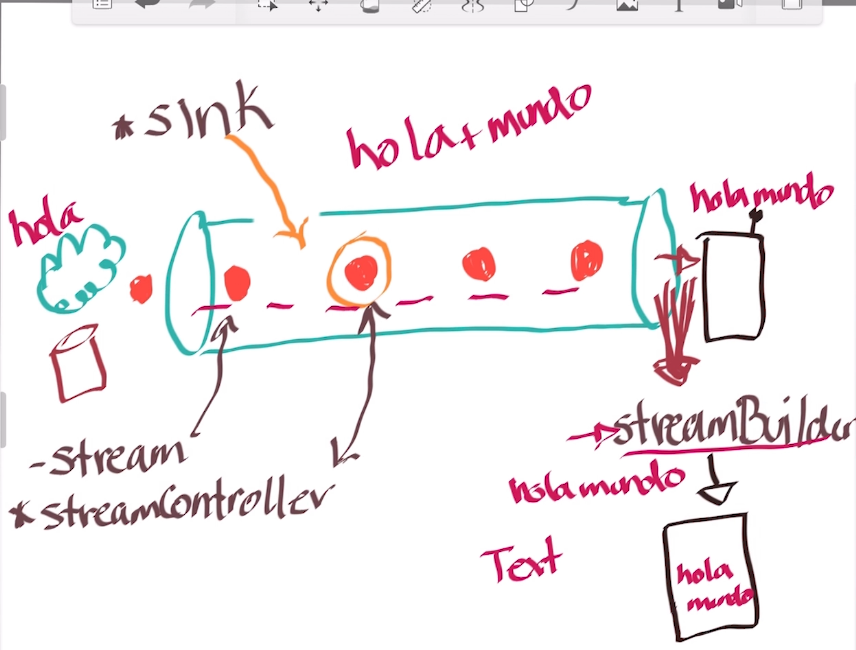 *sink
hola+mundo
hola
hola mundo
-stream
*streamController
streamBuilder
hola mundo
Text
hola
mundo